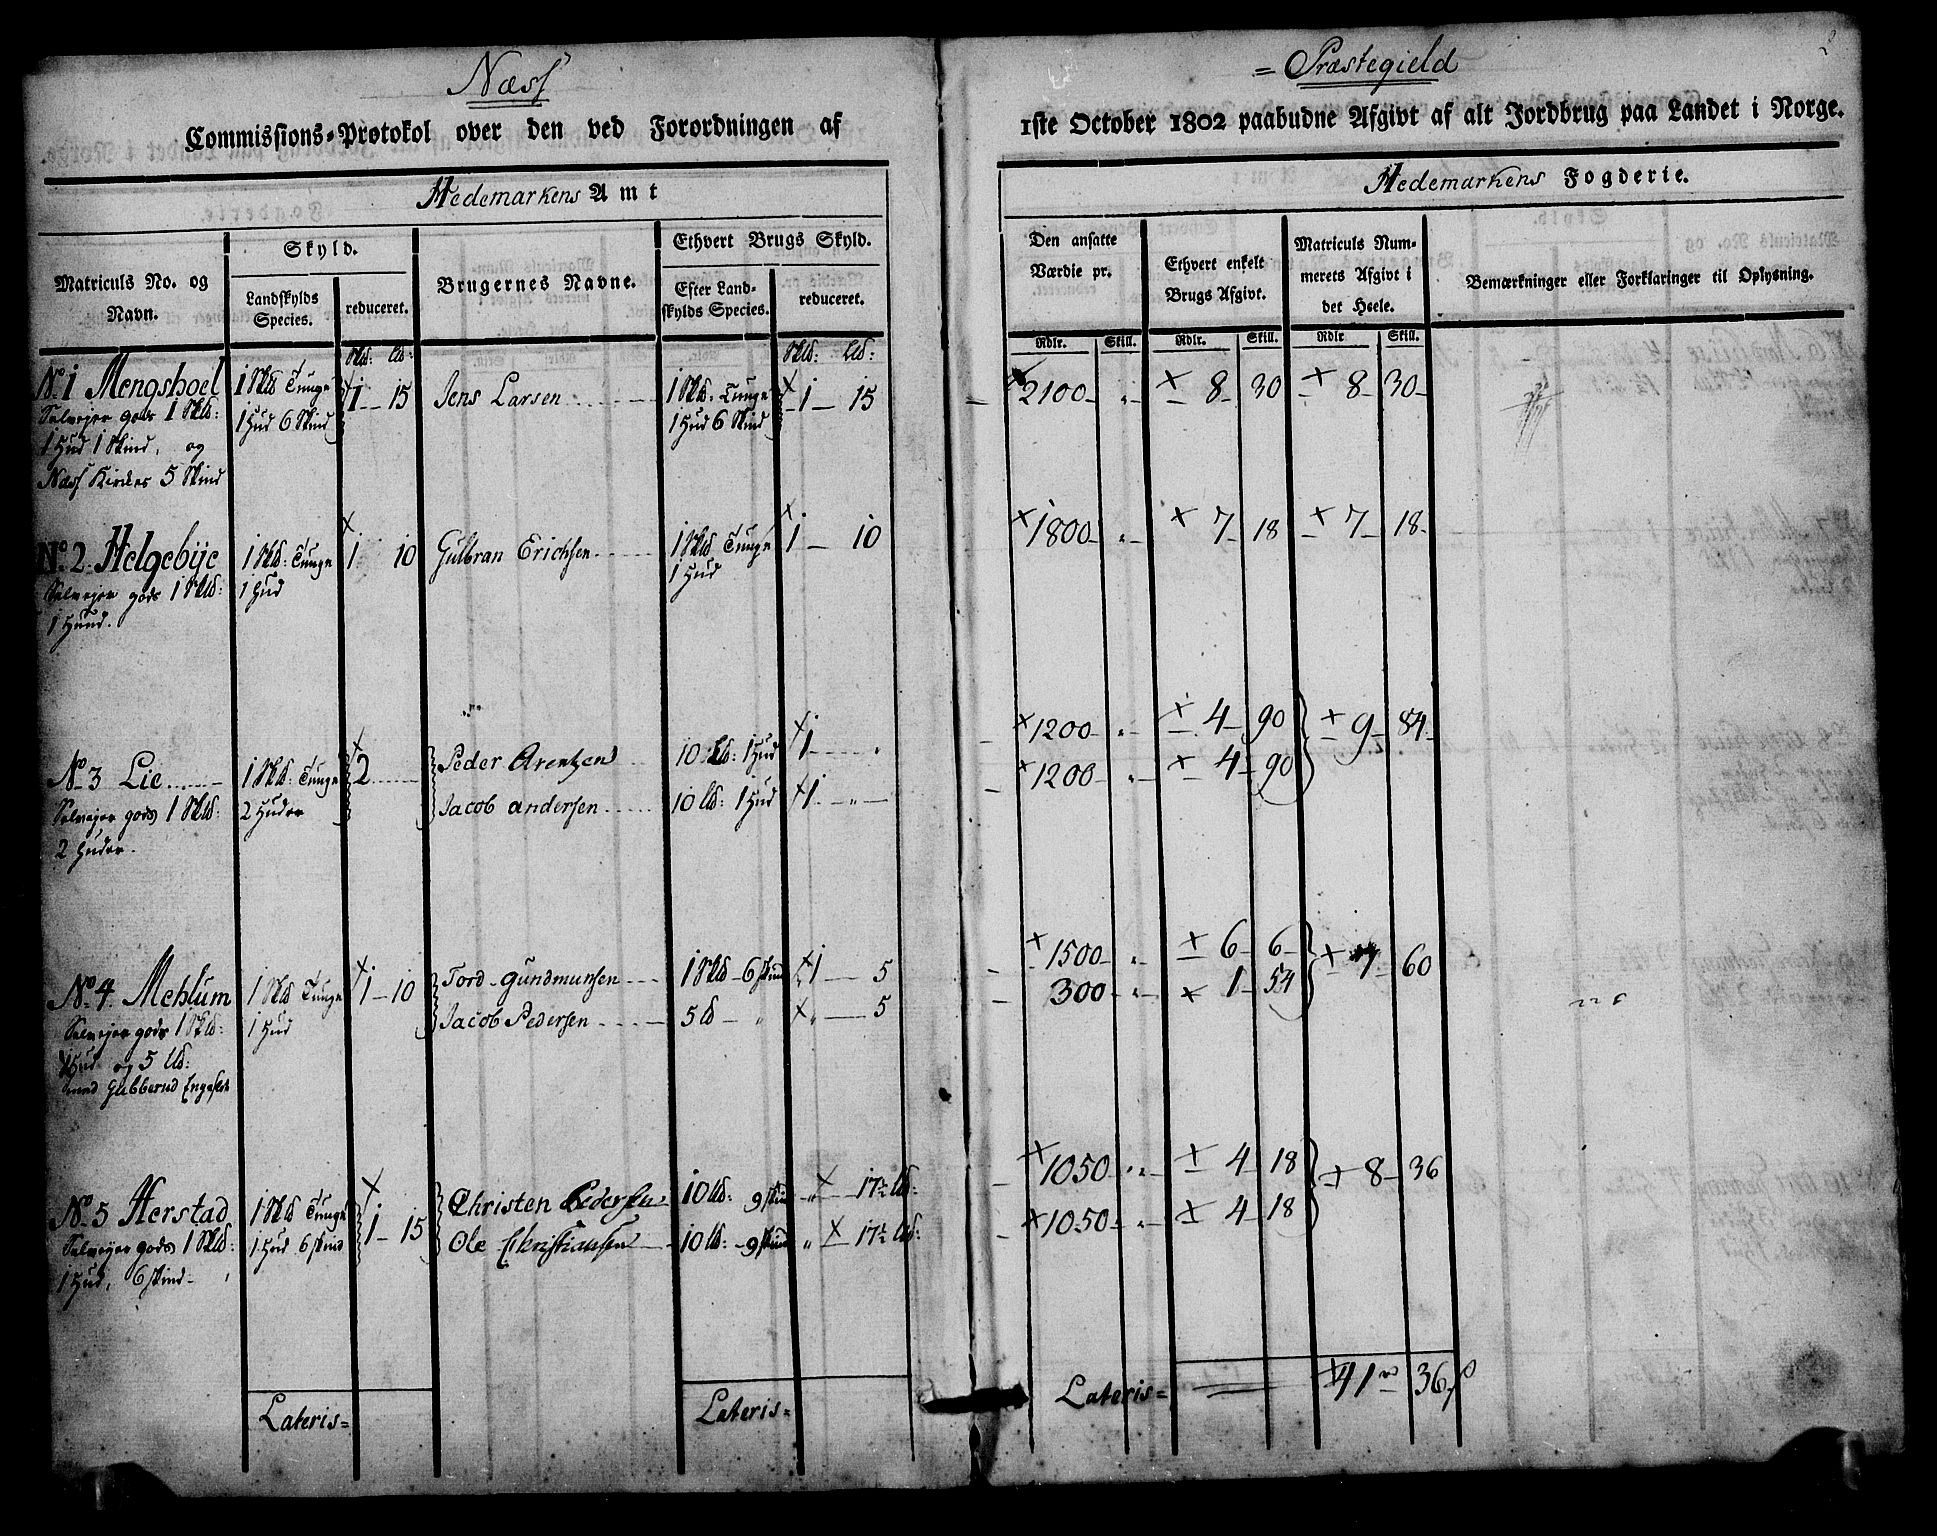 Næss
= Præstegield
2
Commissions-Protokol over den ved Forordningen af
1ste October 1802 paabudne Afgivt af alt Jordbrug paa Landet i Norge.
Hedemarkens Amt
Hedemarkens Fogderie.
Matriculs No. og Navn.
Skyld.
Landskylds Species.
reduceret.
Brugernes Navne.
Ethvert Brugs Skyld.
Efter Landskylds Species.
reduceret.
Den ansatte Værdie pr.
Ethvert enkelt Brugs Afgivt.
Matriculs Nummerets Afgivt i det Heele.
Bemærkninger eller Forklaringer til Oplysning.
Rdlr. Skill. Rdlr. Skill. Rdlr Skill.
Skd: Ld: Skd: Ld:
No. 1 Mengshoel 1 Skd: Tunge 1 Hud 6 Skind 1 - 15 Jens Larsen 1 Skd. Tunge 1 Hud 6 Skind 1 - 15 2100 - „ - 8 30 8 30
Selveyer gods 1 Skd:
1 Hud 1 Skind, og
Næss Kirkes 5 Skind
No. 2 Helgebye 1 Skd: Tunge 1 Hud 1 10 Gulbran Erichsen 1 Skd Tunge 1 Hud 1 - 10 1800 - „ - 7 18 7 18
Selveyer gods 1 Skd:
1 Huud.
No. 3 Lie 1 Skd: Tunge 2 Huder 2 Peder Arentzen 10 Ld: 1 Hud 1 - „ 1200 - „ - 4 90 9 84
Selveyer gods 1 Skd: Jacob Andersen 10 Ld: 1 Hud 1 - „ - 1200 - „ - 4 90
2 Huder.
No. 4 Mehlum 1 Skd Tunge 1 Hud 1 - 10 Tord Gundmunsen 1 Skd - 6 Skind 1 - 5 1500 - „ - 6 6 7 60
Selveyer gods 1 Skd: Jacob Pedersen 5 Ld - „ „ - 5 300 - „ - 1 54
1 Hud og 5 Ld:
med Gubberud Engeslet
No. 5 Herstad 1 Skd Tunge 1 Hud 6 Skind 1 - 15 Christen Pedersen 10 Ld: 9 Skind „ - 17½ Ld: 1050 - „ - 4 18 8 36
Selveyer gods 1 Skd: Ole Christiansen 10 Ld: - 9 Skind „ - 17½ Ld: 1050 - „ - 4 18
1 Hud, 6 Skind
Lateris =
Lateris =
Lateris = 41 36